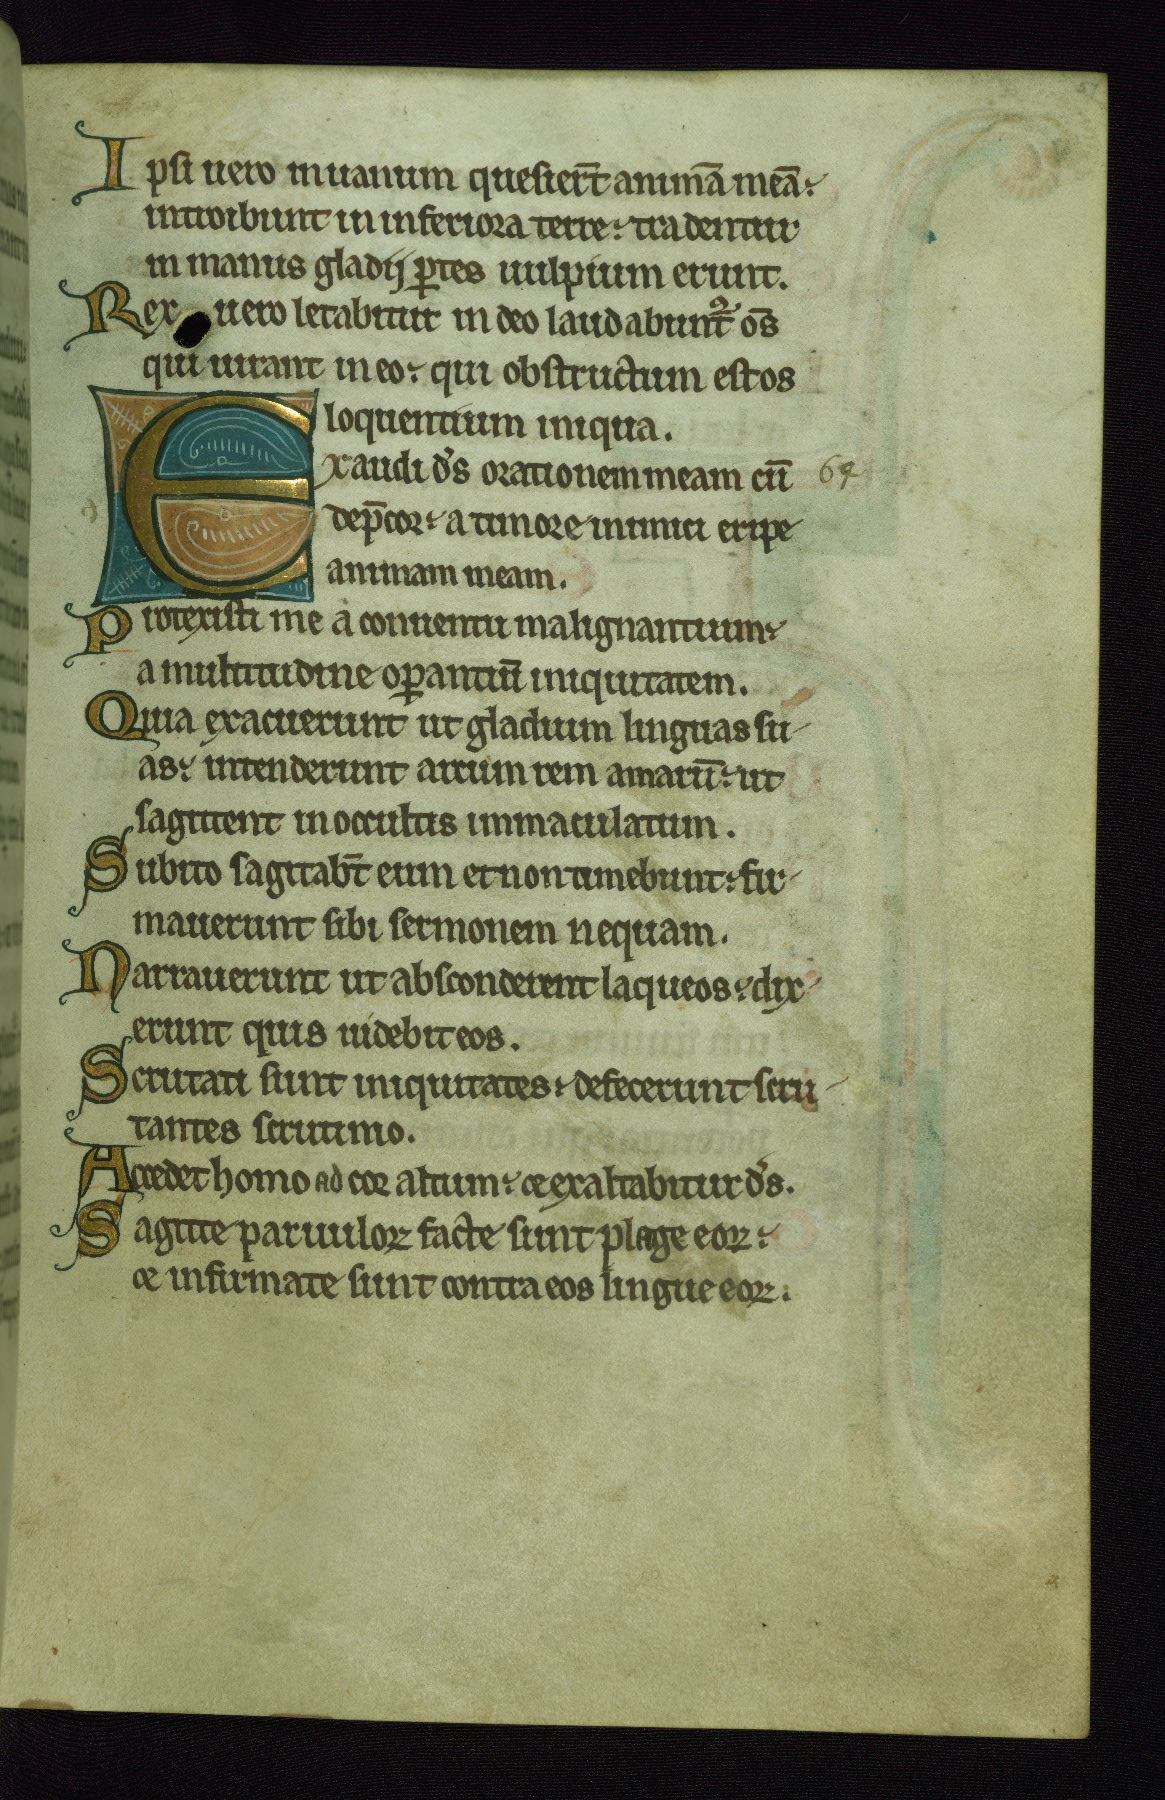 Ipsi uero in uanum quesier̄t animā meā:
introibunt in inferiora terre: tradentur
in manus gladij ꝑtes uulpium erunt.
Rex uero letabitur in deo laudabunt᷒ om̄s
qui iurant in eo: qui obstructum est os
loquentium iniqua.
Exaudi d̄s orationem meam cū 64
dep̄cor: a timore inimici eripe
animam meam.
Protexisti me a conuentu malignantium:
a multitudine oꝑantiū iniquitatem.
Quia exacuerunt ut gladium linguas su-
as: intenderunt arcum rem amarū: ut
sagittent in occultis immaculatum.
Subito sagitab̄t eum et non timebunt: fir-
mauerunt sibi sermonem nequam.
Narrauerunt ut absconderent laqueos: dix-
erunt quis uidebit eos.
Scrutati sunt iniquitates: defecerunt scru-
tantes scrutinio.
Accedet homo ad cor altum: et exaltabitur d̄s.
Sagitte paruuloꝝ facte sunt plage eoꝝ:
et infirmate sunt contra eos lingue eoꝝ.